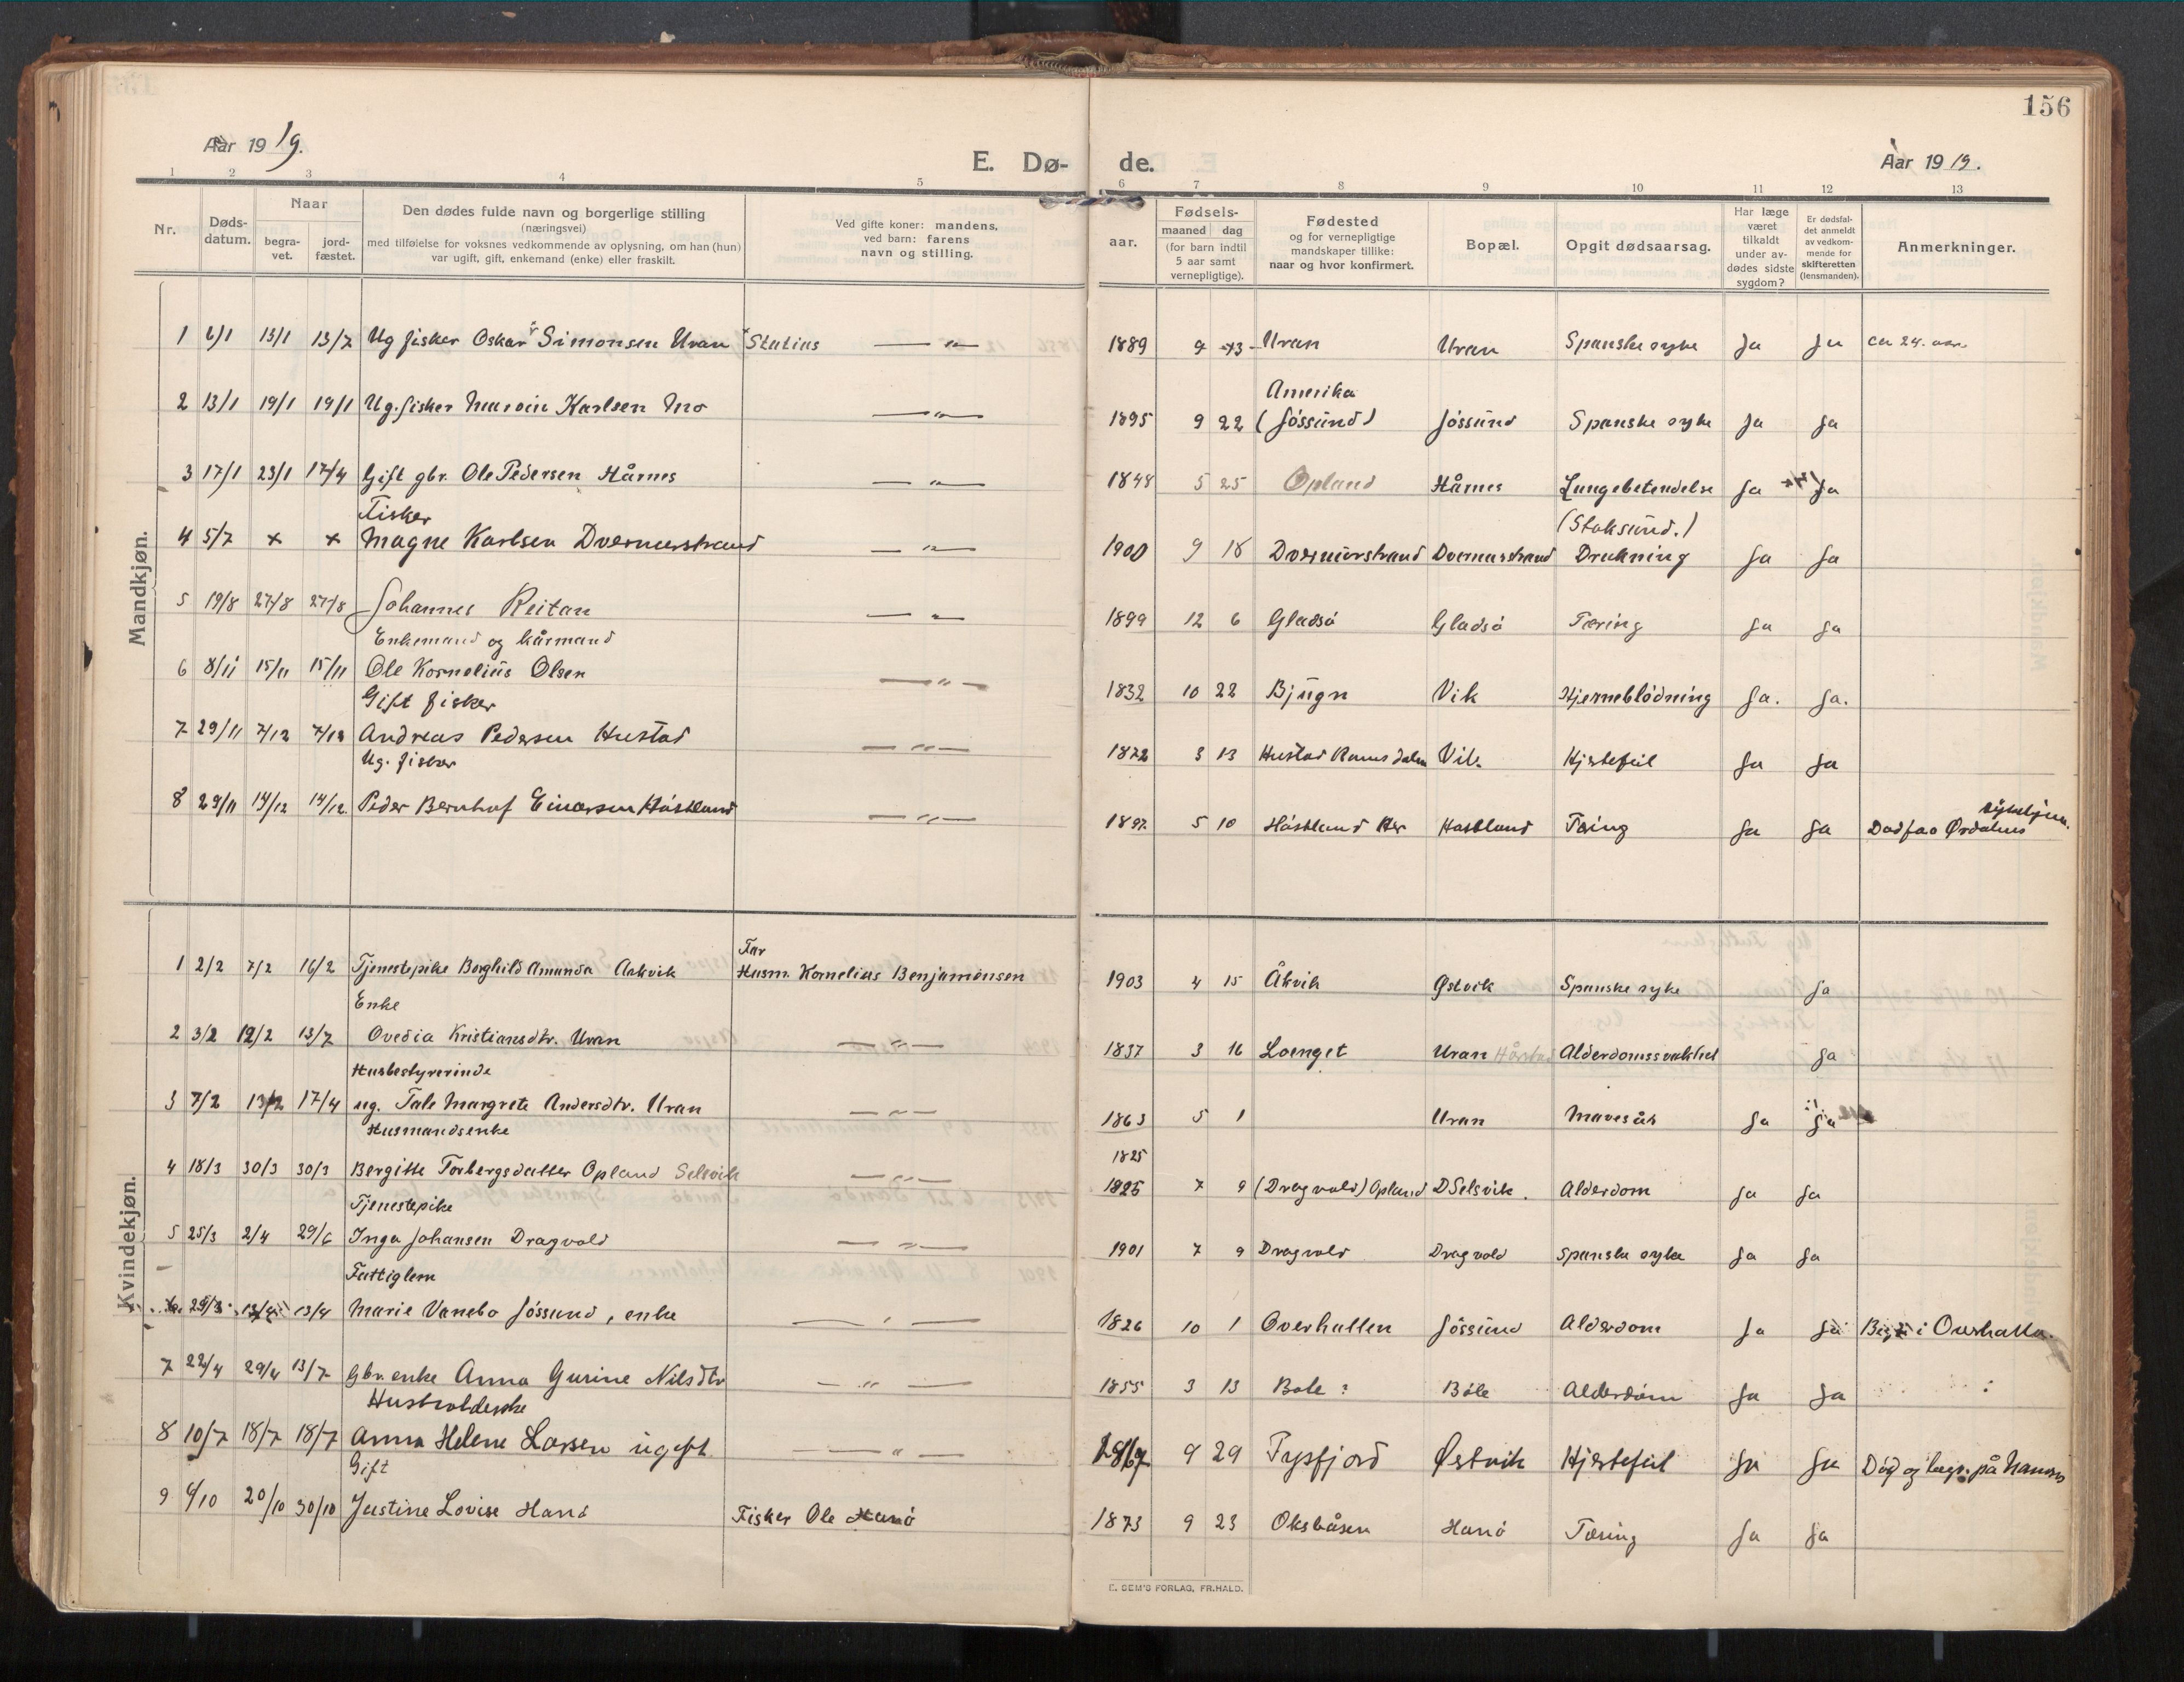 156
Aar 1919.
E. Dø-
de.
Aar 1919.
1 2 3 4 5 6 7 8 9 10 11 12 13
Nr.
Døds-
datum.
Naar
begra-
vet.
jord-
fæstet.
Den dødes fulde navn og borgerlige stilling
(næringsvei)
med tilføielse for voksnes vedkommende av oplysning, om han (hun)
var ugift, gift, enkemand (enke) eller fraskilt.
Ved gifte koner: mandens,
ved barn: farens
navn og stilling.
aar.
Fødsels-
maaned dag
(for barn indtil
5 aar samt
vernepligtige).
Fødested
og for vernepligtige
mandskaper tillike:
naar og hvor konfirmert.
Bopæl.
Opgit dødsaarsag.
Har læge
været
tilkaldt
under av-
dødes sidste
sygdom?
Er dødsfal-
det anmeldt
av vedkom-
mende for
skifteretten
(lensmanden).
Anmerkninger.
Mandkjøn.
1 6/1 13/1 13/7 Ug fisker Oskar Simonsen Uran Statius — " — 1889 9 23 Uran Uran Spanske syke Ja Ja ca 24. aar
Amerika
2 13/1 19/1 19/1 Ug. fisker Marvin Karlsen Mo — " — 1895 9 22 (Jössund) Jössund Spanske syke Ja Ja
3 17/1 23/1 17/4 Gift gbr. Ole Pedersen Hårnes — " — 1848 5 25 Opland Hårnes Lungebetendelse Ja Ja
Fisker (Stoksund.)
4 5/7 × × Magne Karlsen Dvernesstrand — " — 1900 9 18 Dvernesstrand Dvernesstrand Drukning Ja Ja
5 19/8 27/8 27/8 Johannes Reitan — " — 1899 12 6 Gladsö Gladsö Tæring Ja Ja
Enkemand og kårmand
6 8/11 15/11 15/11 Ole Kornelius Olsen — " — 1832 10 22 Bjugn Vik Hjerneblödning Ja. Ja.
Gift fisker
7 29/11 7/12 7/12 Andreas Pedersen Hustad — " — 1872 3 13 Hustad Romsdalen Vik Hjertefeil Ja Ja
Ug. fisker
8 29/11 14/12 14/12 Peder Bernhof Einarsen Håstland — " — 1897 5 10 Håstland Her Hastland Tæring Ja Ja
Kvindekjøn.
Far
1 2/2 7/2 16/2 Tjenestepike Borghild Amunda Aakvik Husm. Kornelius Benjamensen 1903 4 15 Åkvik Østvik Spanske syke Ja
Enke
2 3/2 12/2 13/7 Ovedia Kristiansdtr. Uran — " — 1837 3 16 Loenget Uran Alderdomssvakhet Ja
Husbestyrerinde
3 7/2 13/2 17/4 ug. Tale Margrete Andersdtr. Uran — " — 1863 5 1 Uran Mavesår Ja Ja
Husmandsenke
1825
4 18/3 30/3 30/3 Bergitte Torbergsdatter Opland Selsvik — " — 1825 7 9 (Dragvold) Opland Selsvik. Alderdom Ja Ja
Tjenestepike
5 25/3 2/4 29/6 Inga Johansen Dragvold — " — 1901 7 9 Dragvold Dragvold Spanske syke Ja Ja
Fattiglem
6 29/3 13/4 13/4 Marie Vanebo Jössund, enke — " — 1826 10 1 Overhallen Jössund Alderdom Ja Ja i Overhalla
7 22/4 29/4 13/7 Gbr. enke Anna Gurine Nilsdtr — " — 1855 3 13 Bole? Böle Alderdom Ja Ja
8 10/7 18/7 18/7 Anna Helene Larsen ugift — " — 1867 9 29 Tysfjord Østvik Hjertefeil Ja Ja Död og begr. på Namsos
Gift
9 6/10 20/10 30/10 Justine Lovise Hanö Fisker Ole Hanö 1873 9 23 Oksbåsen Hanö Tæring Ja Ja
E. SEM'S FORLAG, FR.HALD.